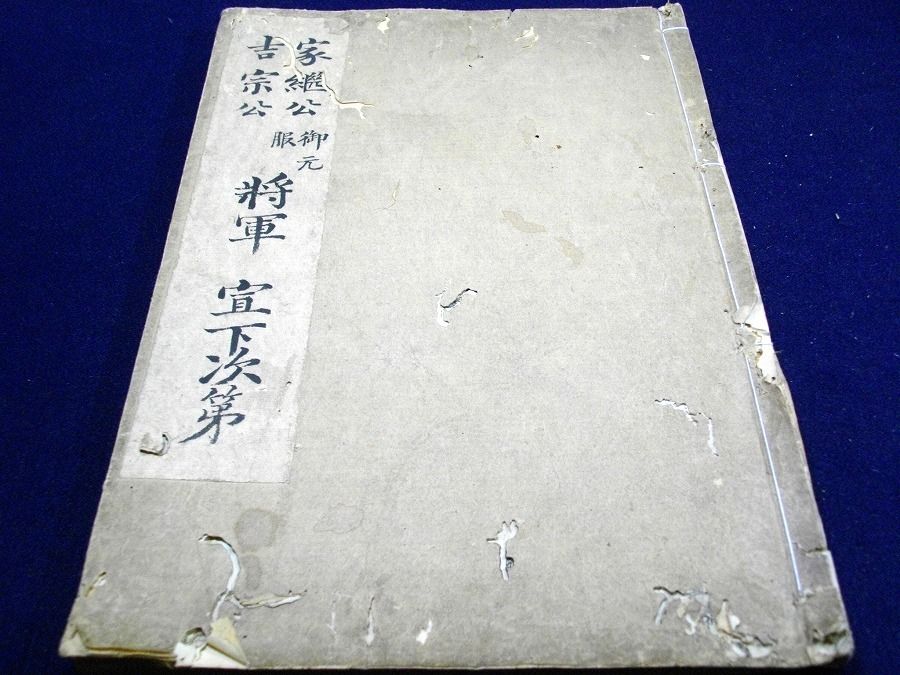 家繼公
吉宗公
御元
服
將軍
宣下次第